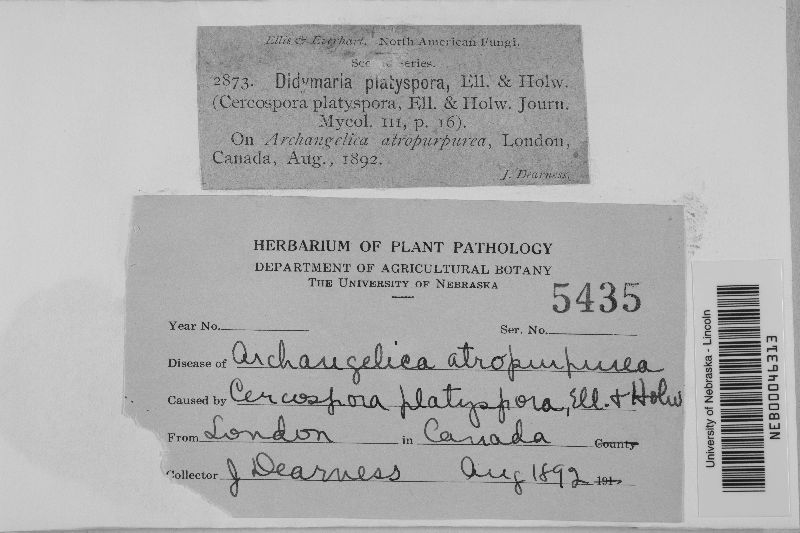 Ellis & Everhart. North American Fungi.
Second Series.
2873. Didymaria platyspora, Ell. & Holw.
(Cercospora platyspora, Ell. & Holw. Journ.
Mycol. III, p. 16).
On Archangelica atropurpurea, London,
Canada, Aug., 1892.
J. Dearness.
HERBARIUM OF PLANT PATHOLOGY
DEPARTMENT OF AGRICULTURAL BOTANY
THE UNIVERSITY OF NEBRASKA
5435
Year No. Ser. No.
Disease of Archangelica atropurpurea
Caused by Cercospora platyspora, Ell. & Holw
From London in Canada County
Collector J Dearness Aug 1892 191
University of Nebraska - Lincoln
NEB00046313